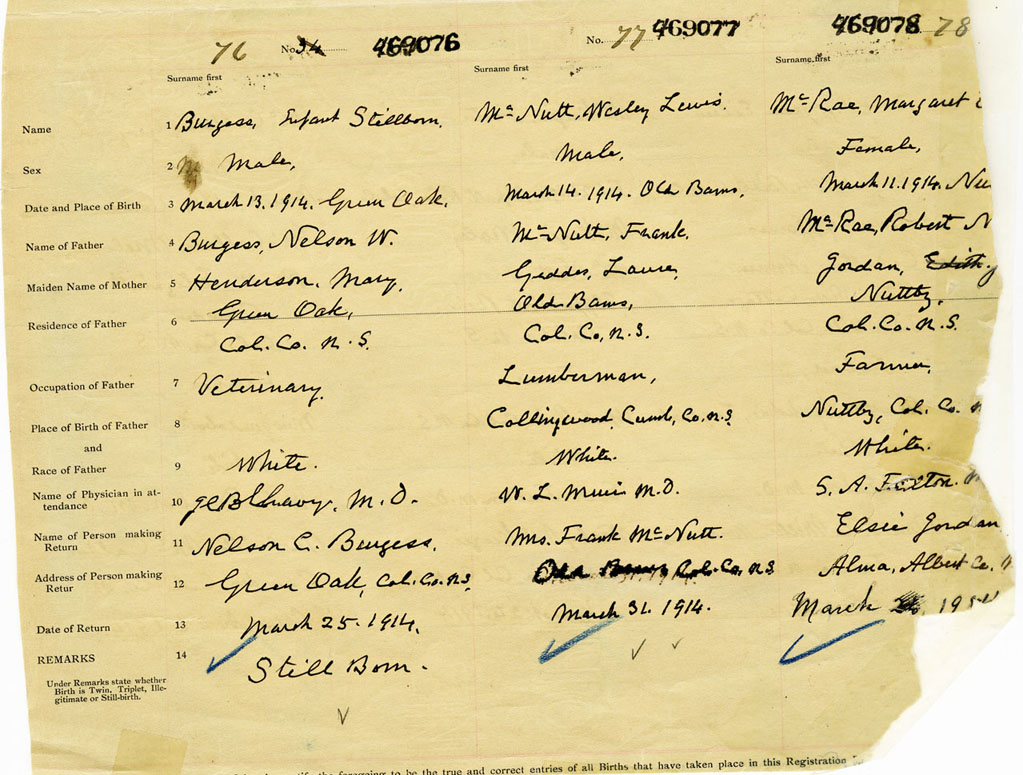 76 No. 34 469076 No. 77 469077 469078 78
Surname first Surname first Surname first
Name 1 Burgess, Infant Stillborn. McNutt, Wesley Lewis. McRae, Margaret
Sex 2 Male, Male, Female,
Date and Place of Birth 3 March 13. 1914. Green Oak. March 14. 1914. Old Barns, March 11. 1914.
Name of Father 4 Burgess, Nelson W. McNutt, Frank, McRae, Robert N
Maiden Name of Mother 5 Henderson, Mary, Geddes, Laura, Jordan, Edith
Green Oak, Old Barns, Nuttby,
Residence of Father 6
Col. Co. N.S. Col. Co, N.S. Col. Co. N.S.
Occupation of Father 7 Veterinary. Lumberman, Farmer,
Place of Birth of Father 8 Collingwood, Cumb, Co, N.S Nuttby, Col. Co.
and
Race of Father 9 White. White. White.
Name of Physician in at-
tendance 10 M.D. W. L. Muir M.D. S. A.
Name of Person making
Return 11 Nelson C. Burgess. Mrs. Frank McNutt. Elsie Jordan
Address of Person making
Retur 12 Green Oak, Col. Co. N.S. Old Barns Col. Co, N.S Alma, Albert Co.
Date of Return 13 March 25. 1914. March 31. 1914. March
REMARKS 14 Still Born.
Under Remarks state whether
Birth is Twin, Triplet, Ille-
gitimate or Still-birth.
the foregoing to be the true and correct entries of all Births that have taken place in this Registration